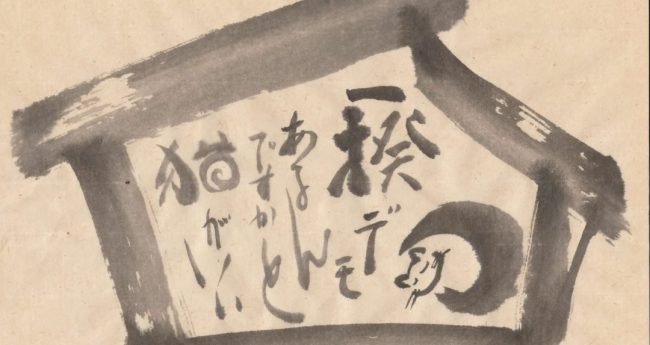 一揆デモ
あるん
ですかと
猫がいい